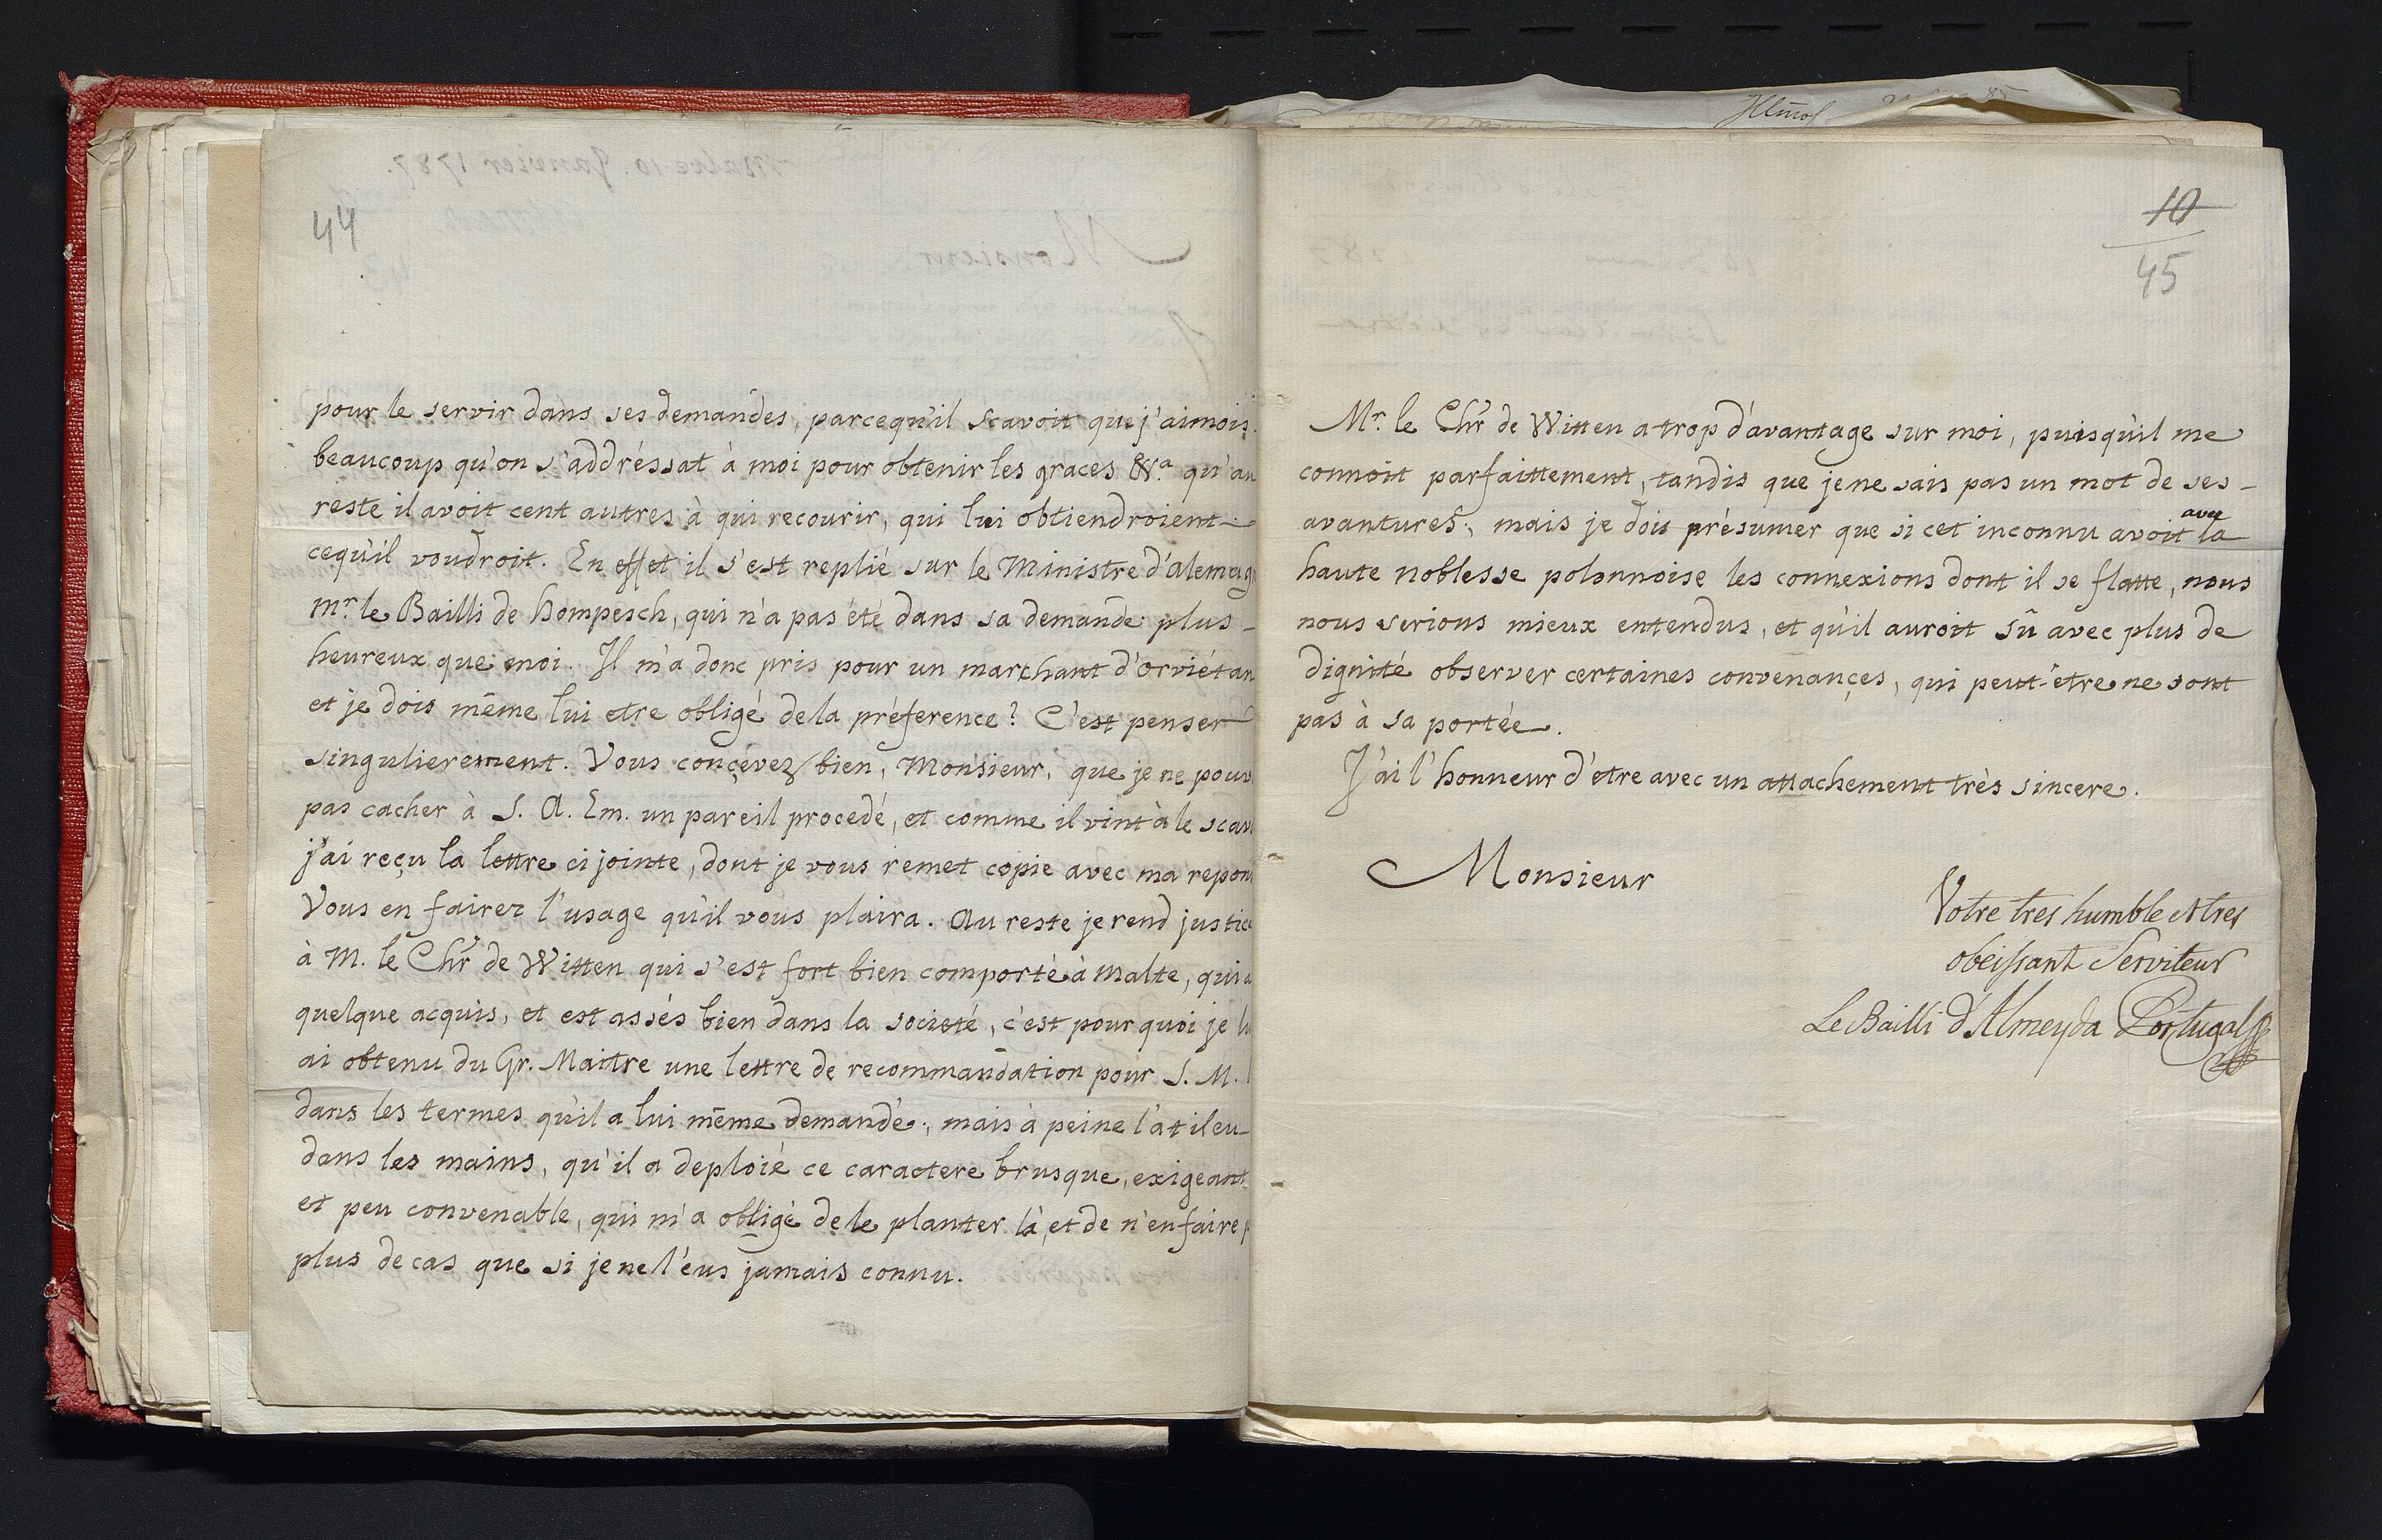 44
pour le servir dans ses demandes, parcequ'il scavoit que j'aimois
beaucoup qu'on s'addréssat à moi pour obtenir les graces &.a qu'au
reste il avoit cent autres à qui recourir, qui lui obtiendroient
cequ'il voudroit. En effet il s'est replié sur le Ministre d'alemag
Mr. le Bailli de hompesch, qui n'a pas été dans sa demande plus
heureux que moi. Il m'a donc pris pour un marchant d'orviétan
et je dois même lui etre obligé dela préference? C'est penser
singulierement. Vous conçévez bien, Monsieur, que je ne pouv
pas cacher à S. A. Em. un pareil procedé, et comme il vint à le scav
j'ai reçu la lettre ci jointe, dont je vous remet copie avec ma repon
Vous en fairez l'usage qu'il vous plaira. Au reste je rend justice
à M. le Chr de Witten qui s'est fort bien comporté à Malte, qui a
quelque acquis, et est assés bien dans la societé, c'est pourquoi je lu
ai obtenu du Gr. Maitre une lettre de recommandation pour S. M.
dans les termes qu'il a lui même demandé; mais à peine l'at il eu
dans les mains, qu'il a deploié ce caractere brusque, exigeant
et peu convenable, qui m'a obligé dele planter là, et de n'en faire p
plus de cas que si je ne l'eus jamais connu.
10
45
Mr. le Chr de Witten a trop d'avantage sur moi, puisqu'il me
connoit parfaittement, tandis que je ne sais pas un mot de ses
avantures; mais je dois présumer que si cet inconnu avoit avec la
haute noblesse polonnoise les connexions dont il se flatte, nous
nous serions mieux entendus, et qu'il auroit sû avec plus de
dignité observer certaines convenançes, qui peut-être ne sont
pas à sa portée.
J'ai l'honneur d'etre avec un attachement très sincere.
Monsieur
Votre tres humble et tres
obeissant Serviteur
Le Bailli d'Almeyda Portugal